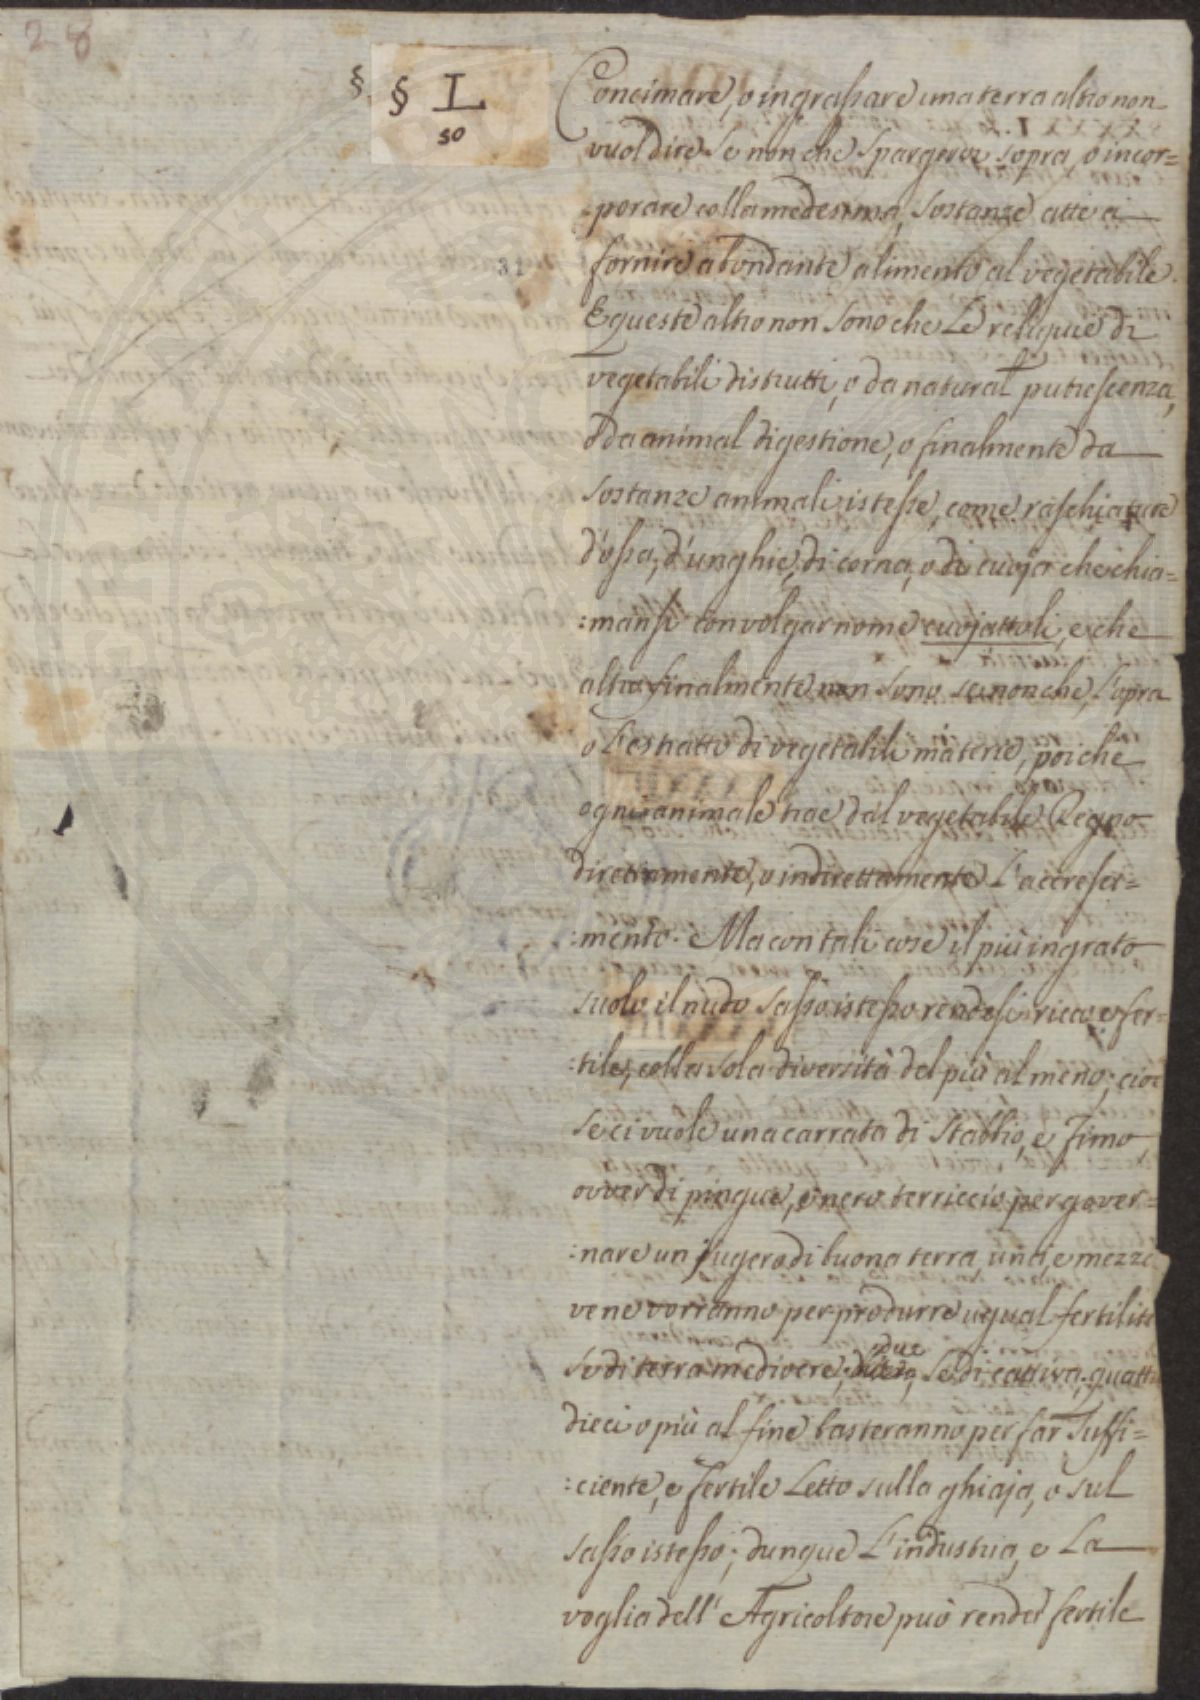 28
§. § L
50
Concimare, o ingrassare una terra altro non
vuol dire se non che spargervi sopra, o incor=
:porare colla medesima, sostanze atte a
31
fornire abondante alimento al vegetabile.
E queste altro non sono che le reliquie di
vegetabili distrutti, o da natural putrescenza,
o da animal digestione, o finalmente da
sostanze animali istesse, come raschiature
d'ossa, d'unghie, di corna, o di cuoja che chia=
:mansi con volgar nome cuojattoli, e che
altro finalmente non sono se non che, l'opra
o l'estratto di vegetabili materie, poiche
ogni animale trae dal vegetabile Regno
direttamente, o indirettamente l'accresci=
:mento. Ma con tali cose il più ingrato
suolo il nudo sasso istesso rendesi ricco e fer=
:tile, colla sola diversità del più al meno; cioe
se ci vuole una carrata di Stabbio, e Fimo
ovver di pingue, e nero terriccio per gover=
:nare un jugero di buona terra, una, e mezza
ve ne vorranno per produrre ugual fertilità
se di terra mediocre; due, se di cattiva; quattro
dieci o più al fine basteranno per far suffi=
:ciente, e fertile Letto sulla ghiaja, o sul
sasso istesso; dunque l'industria, e la
voglia dell' Agricoltore può render fertile